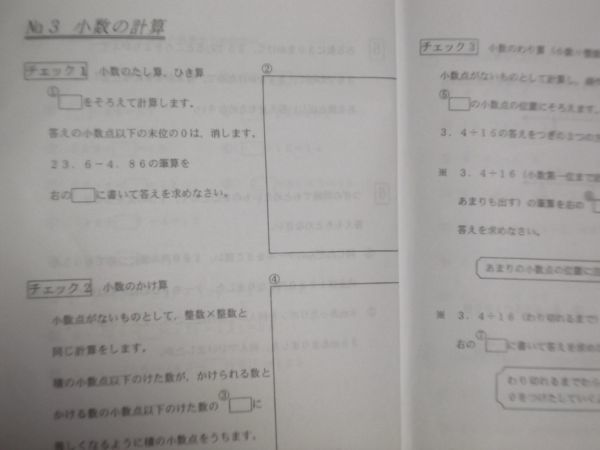 №3 小数の計算
チェック1 小数のたし算、ひき算
①
をそろえて計算します。
答えの小数点以下の末位の0は、消します。
23.6-4.86の筆算を
右の に書いて答えを求めなさい。
②
チェック2 小数のかけ算
小数点がないものとして、整数×整数と
同じ計算をします。
積の小数点以下のけた数が、かけられる数と
かける数の小数点以下のけた数の ③ に
等しくなるように積の小数点をうちます。
④
チェック3 小数のわり算
小数点がないものとして計算し、
⑤
の小数点の位置にそろえます。
の答えをつぎの
※ 3.4÷16(小数第一位まで
あまりも出す)の筆算を右の
答えを求めなさい。
あまりの小数点の位置に
※ 3.4÷16(わり切れるまで)
⑦
右の に書いて答えを求め
わり切れるまでわ
0をつけたしていく